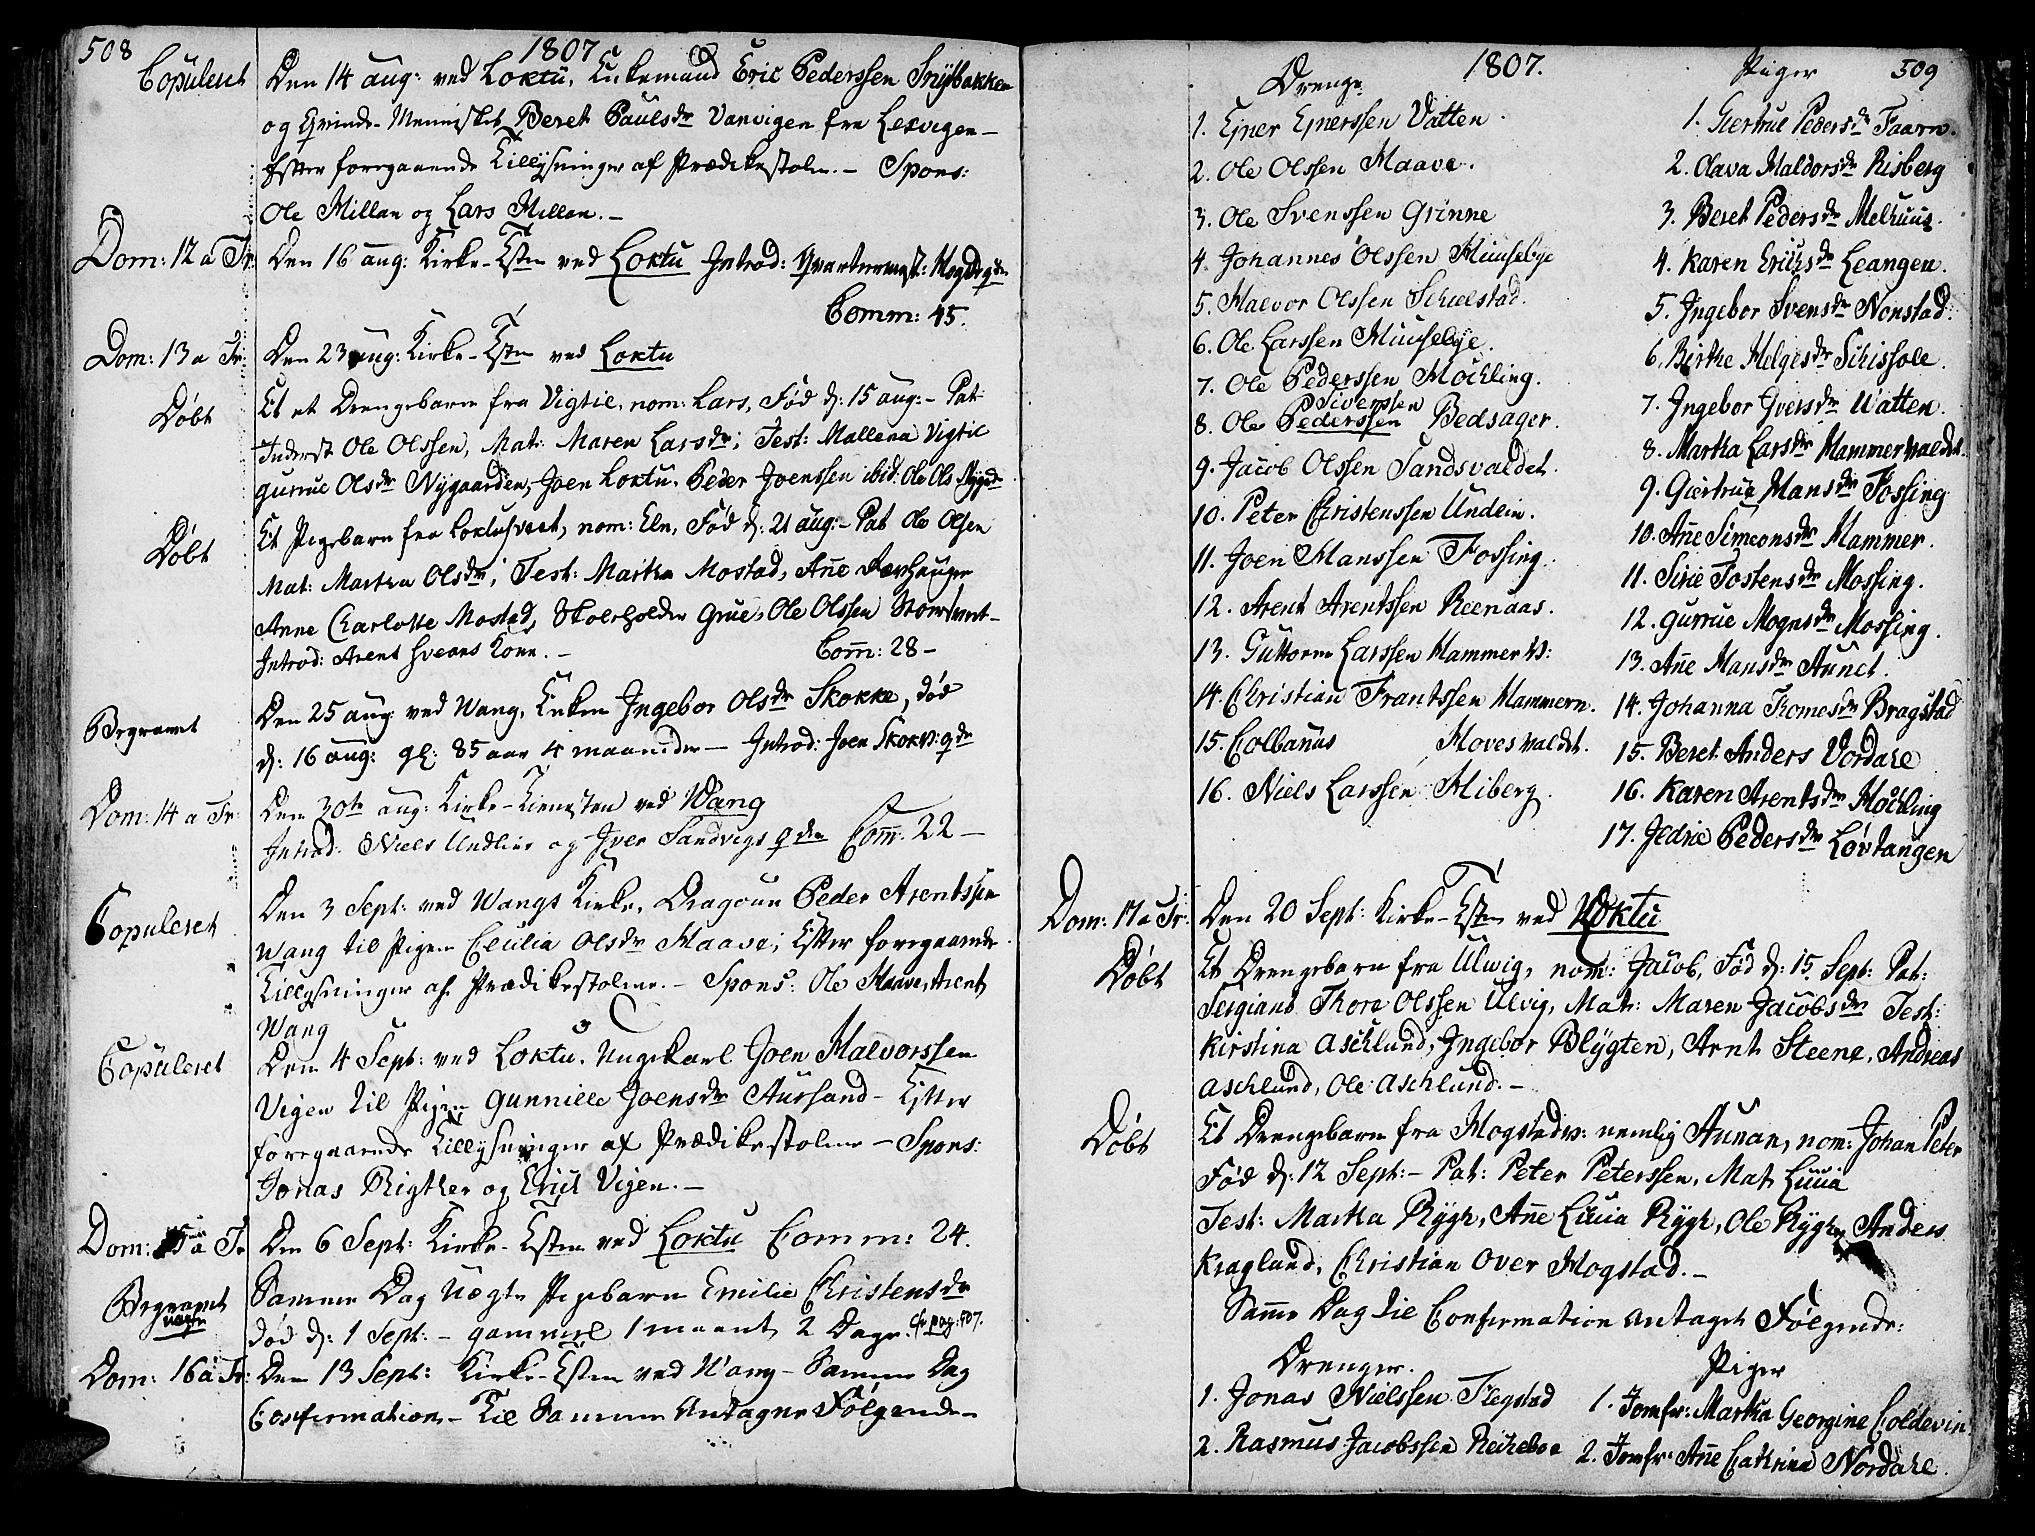 508
1807
Copuleret
Den 14 aug: ved Loktu, Enkemand Eric Pederssen Snÿsbakken
og Qvinde-Mennisket Beret Paulsdr Vanvigen fra Lexvigen -
Efter foregaaende Tillÿsninger af Prædikestolen. - Spons:
Ole Millan og Lars Millan. -
Dom: 12 a Tr: Den 16 aug: Kirke-Tsten ved Loktu Introd:
Comm: 45.
Dom: 13 a Tr: Den 23 aug: Kirke-Tsten ved Loktu
Døbt
Et et Drengebarn fra Vigtil, nom: Lars, Fød d: 15 aug: - Pat:
Inderst Ole Olssen, Mat: Maren Larsdr; Test: Mallena Vigtil
gurrue Olsdr Nÿgaarden, Joen Loktu. Peder Joenssen ibid: Ole Ols:
Døbt
Et Pigebarn fra, nom: Eln, Fød d: 21 aug: - Pat Ole Olsen
Mat: Martha Olsdr; Test: Martha Mostad, Añe
Anne Charlotte Mostad, Skoleholder Grue, Ole Olssen
Introd: Arent Hveans Kone. - Com̄: 28 -
Begravet
Den 25 aug ved Wang, Enken Ingebor Olsdr Skokke, død
d: 16 aug: gl: 85 aar 4 maaneder - Introd: Joen qdr
Dom: 14 a Tr: Den 30te aug: Kirke-Tienesten ved Wang
Introd: Niels Undlien og Iver Sandvigs qder Com̄: 22 -
Copuleret
Den 3 Sept: ved Wangs Kirke, Dragoun Peder Arentssen
Wang til Pigen Cecilia Olsdr Haave; Efter foregaaende
Tillÿsninger af Prædikestolene. - Spons: Ole Haave, Arent
Wang
Copuleret
Den 4 Sept: ved Loktu. Ungekarl Joen Halvorssen
Vigen til Pigen Gunnille Joensdr Aursand - Efter
foregaaende Tillÿsninger af Prædikestolene - Spons:
Jonas Rigther og Erich Vigen. -
Dom: 15 a Tr Den 6 Sept: Kirke-Tsten ved Loktu Comm: 24.
Begravet
Samme Dag Uægte Pigebarn Emilie Christensdr
uægte
død d: 1 Sept: - gammel 1 maanet 2 Dage. cfr pag: 507.
Dom: 16 a Tr: Den 13 Sept: Kirke-Tsten ved Wang - Samme Dag
Confirmation - Til Samme Antagne Følgende -
1807.
509
Drenge
1. Ejner Ejnerssen Vatten.
2. Ole Olssen Haave.
3. Ole Svenssen Grinne
4. Johannes Olssen Huusebye
5. Halvor Olssen Schielstad.
6. Ole Larssen Huusebye.
7. Ole Pederssen Høchling.
Sivertssen
8. Ole Pederssen Bedsager.
9. Jacob Olssen Sandsvaldet.
10. Peter Christenssen Undlin.
11. Joen Hanssen Fossing.
12. Arent Arentssen Reenaas.
13. Guttorm Larssen Hammer W:
14. Christian Frantssen Hammern.
15. Colbanus Hoves valdet.
16. Niels Larssen Hiberg.
Piger
1. Giertrue Pedersdr Faarn.
2. Olava Haldorsdr Risberg
3. Beret Pedersdr Melhuus.
4. Karen Erichsdr Leangen.
5. Ingebor Svensdr Nonstad.
6. Birthe Helgesdr Schissole.
7. Ingebor Iversdr Watten.
8. Martha Larsdr Hammer valdet.
9. Giertrue Hansdr Fossing
10. Añe Simeonsdr Hammer.
11. Sirie Tostensdr Mossing.
12. Gurrue Mognsdr Mossing.
13. Añe Hansdr Aunet.
14. Johanna Thomesdr Bragstad
15. Beret Anders Vordahl
16. Karen Arentsdr Høchling
17. Jldrie Pedersdr Løvtangen
Dom: 17 a Tr: Den 20 Sept: Kirke-Tsten ved Loktu
Døbt
Et Drengebarn fra Ulvig, nom: Jacob, Fød d: 15 Sept: Pat:
Sergiant Thore Olssen Ulvig, Mat: Maren Jacobsdr Test:
Kirstina Aschlund, Ingebor Blÿgten, Arnt Steene, Andreas
Aschlund, Ole Aschlund. -
Døbt
Et Drengebarn fra Hogstadw: nemlig Aunan, nom: Johan Peter
Fød d: 12 Sept: - Pat: Peter Peterssen, Mat: Lucia
Test: Martha Rÿgh, Añe Lucia Rÿgh, Ole Rÿgh, Anders
Kraglund, Christian Over Hogstad. -
Sam̄e Dag til Confirmation antaget Følgende:
Drenger.
1. Jonas Nielssen Flegstad
2. Rasmus Jacobssen
Piger
1. Jomfr: Martha Georgine Coldevin
2. Jomfr: Añe Cathrina Nordahl.